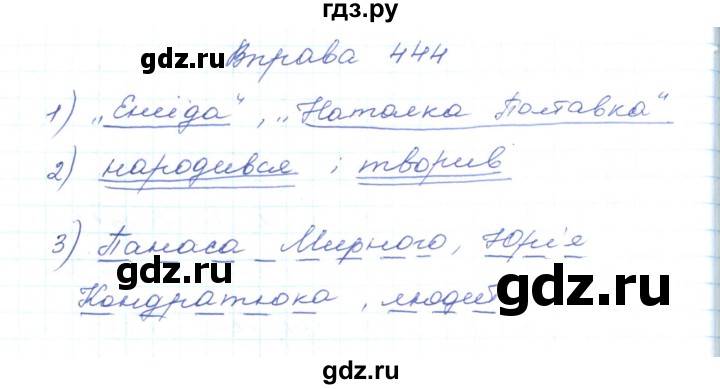 гдз.ру
gdz.ru
Вправа 444
gdz.ru
1) „Енеїда“, „Наталка Полтавка“
gdz.ru
2) народився і творив
3) Панаса Мирного, Юрія
gdz.ru
Кондратюка, людей
gdz.ru
gdz.ru